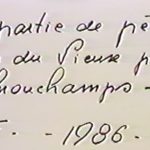 partie de pê
du Vieux p
houchamps -
- 1986.